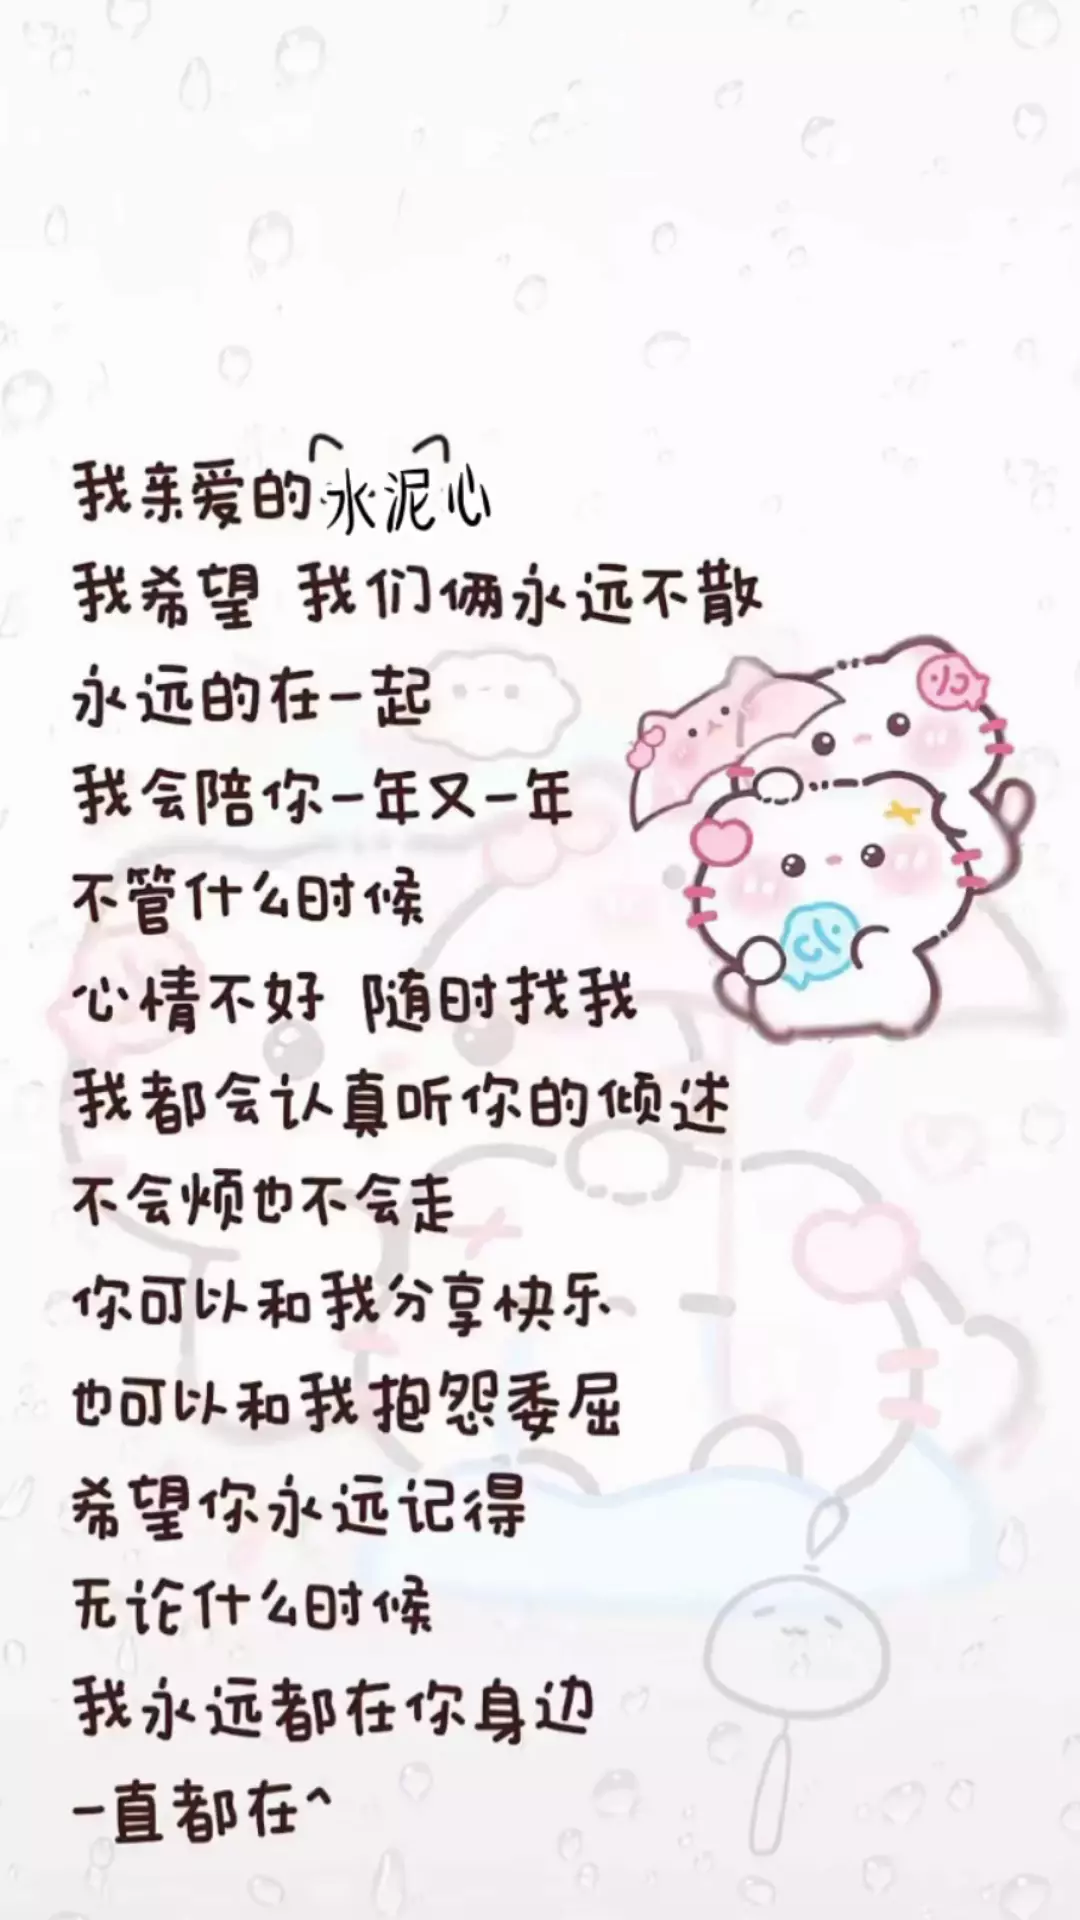 我亲爱的水泥心
我希望 我们俩永远不散
永远的在一起
我会陪你一年又一年
不管什么时候
心情不好 随时找我
我都会认真听你的倾述
不会烦也不会走
你可以和我分享快乐
也可以和我抱怨委屈
希望你永远记得
无论什么时候
我永远都在你身边
一直都在^